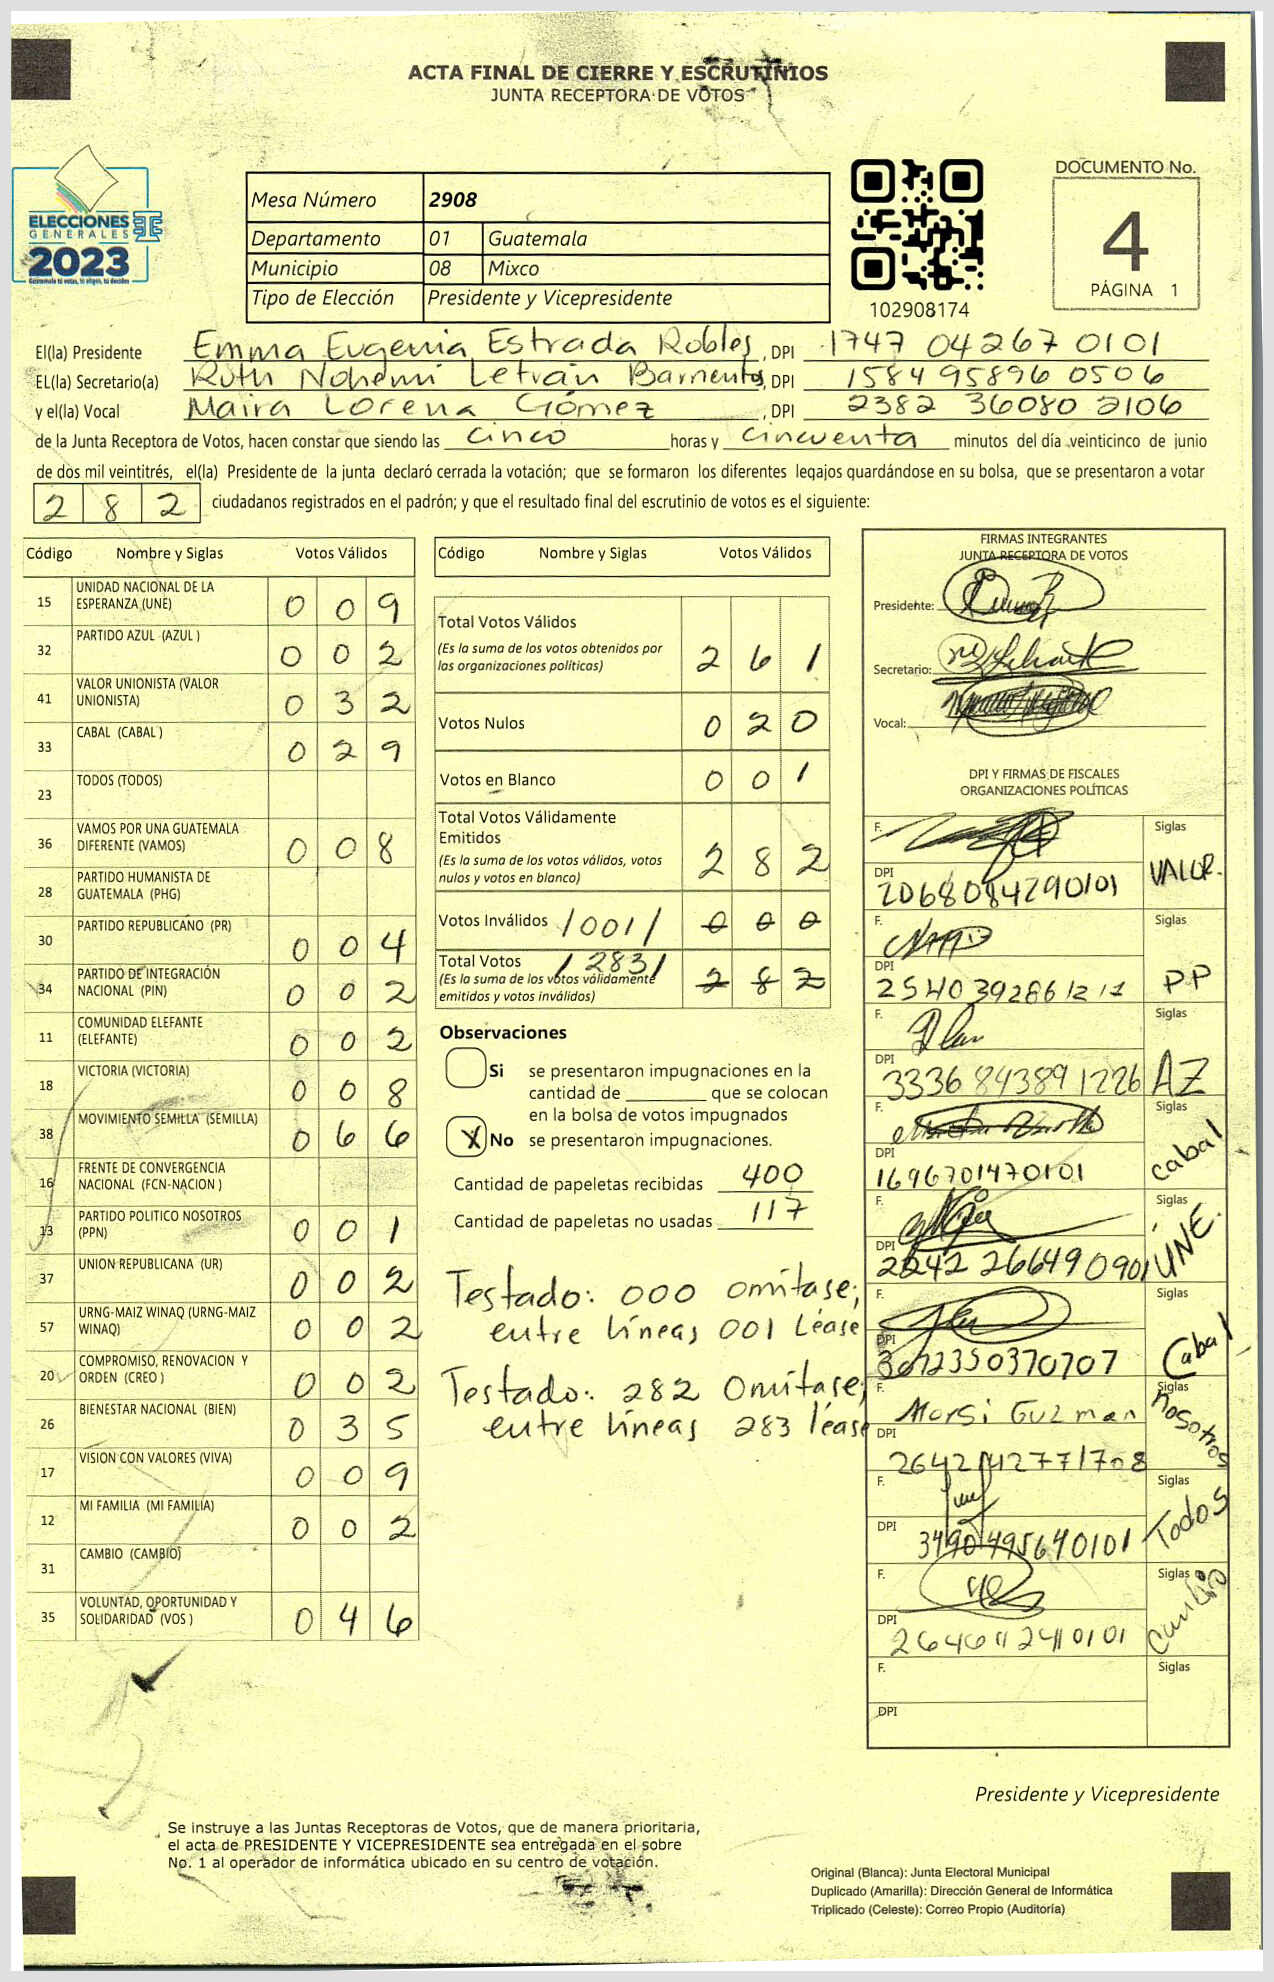 ACTA FINAL DE CIERRE Y ESCRUTINIOS
JUNTA RECEPTORA DE VOTOS
ELECCIONES
GENERALES
2023
Guatemala tú votas, tú eliges, tú decides
Mesa Número 2908
Departamento 01 Guatemala
Municipio 08 Mixco
Tipo de Elección Presidente y Vicepresidente
102908174
DOCUMENTO No.
4
PÁGINA 1
El(la) Presidente Emma Eugenia Estrada Robles, DPI 1747 04267 0101
EL(la) Secretario(a) Ruth Nohemi Letrán Barrientos, DPI 1584 95896 0506
y el(la) Vocal Maira Lorena Gómez, DPI 2382 36080 2106
de la Junta Receptora de Votos, hacen constar que siendo las cinco horas y cincuenta minutos del día veinticinco de junio
de dos mil veintitrés, el(la) Presidente de la junta declaró cerrada la votación; que se formaron los diferentes legajos quardándose en su bolsa, que se presentaron a votar
282 ciudadanos registrados en el padrón; y que el resultado final del escrutinio de votos es el siguiente:
Código Nombre y Siglas Votos Válidos
15 UNIDAD NACIONAL DE LA ESPERANZA (UNE) 009
32 PARTIDO AZUL (AZUL ) 002
41 VALOR UNIONISTA (VALOR UNIONISTA) 032
33 CABAL (CABAL ) 029
23 TODOS (TODOS)
36 VAMOS POR UNA GUATEMALA DIFERENTE (VAMOS) 008
28 PARTIDO HUMANISTA DE GUATEMALA (PHG)
30 PARTIDO REPUBLICANO (PR) 004
34 PARTIDO DE INTEGRACIÓN NACIONAL (PIN) 002
11 COMUNIDAD ELEFANTE (ELEFANTE) 002
18 VICTORIA (VICTORIA) 008
38 MOVIMIENTO SEMILLA (SEMILLA) 066
16 FRENTE DE CONVERGENCIA NACIONAL (FCN-NACION )
13 PARTIDO POLITICO NOSOTROS (PPN) 001
37 UNION REPUBLICANA (UR) 002
57 URNG-MAIZ WINAQ (URNG-MAIZ WINAQ) 002
20 COMPROMISO, RENOVACION Y ORDEN (CREO ) 002
26 BIENESTAR NACIONAL (BIEN) 035
17 VISION CON VALORES (VIVA) 009
12 MI FAMILIA (MI FAMILIA) 002
31 CAMBIO (CAMBIO)
35 VOLUNTAD, OPORTUNIDAD Y SOLIDARIDAD (VOS ) 046
Código Nombre y Siglas Votos Válidos
Total Votos Válidos 261
(Es la suma de los votos obtenidos por las organizaciones políticas)
Votos Nulos 020
Votos en Blanco 001
Total Votos Válidamente Emitidos 282
(Es la suma de los votos válidos, votos nulos y votos en blanco)
Votos Inválidos /001/ 000
Total Votos /283/ 282
(Es la suma de los votos válidamente emitidos y votos inválidos)
Observaciones
Si se presentaron impugnaciones en la
cantidad de ________ que se colocan
en la bolsa de votos impugnados
X No se presentaron impugnaciones.
Cantidad de papeletas recibidas 400
Cantidad de papeletas no usadas 117
Testado: 000 omítase;
entre líneas 001 Léase
Testado: 282 Omítase;
entre líneas 283 léase
FIRMAS INTEGRANTES
JUNTA RECEPTORA DE VOTOS
Presidente:
Secretario:
Vocal:
DPI Y FIRMAS DE FISCALES
ORGANIZACIONES POLÍTICAS
F. Siglas VALOR.
DPI 2068084290101
F. Siglas PP
DPI
F. Siglas AZ
DPI 3336 84389 1226
F. Siglas cabal
DPI 1696701470101
F. Siglas UNE.
DPI 2242 26649 0901
F. Siglas Cabal
DPI
F. Siglas nosotros
DPI
F. Siglas Todos
DPI 3490495640101
F. Siglas Cambio
DPI
F. Siglas
DPI
Presidente y Vicepresidente
Se instruye a las Juntas Receptoras de Votos, que de manera prioritaria,
el acta de PRESIDENTE Y VICEPRESIDENTE sea entregada en el sobre
No. 1 al operador de informática ubicado en su centro de votación.
Original (Blanca): Junta Electoral Municipal
Duplicado (Amarilla): Dirección General de Informática
Triplicado (Celeste): Correo Propio (Auditoría)